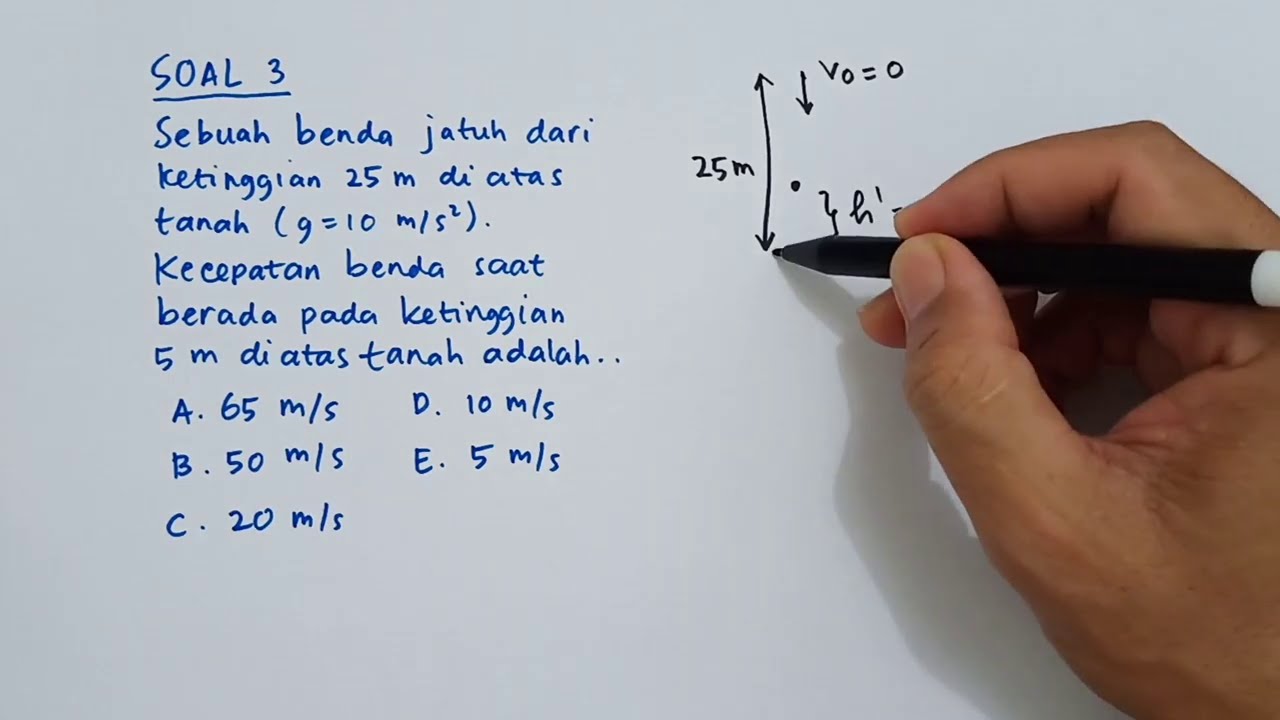 SOAL 3
Sebuah benda jatuh dari
ketinggian 25 m di atas
tanah (g = 10 m/s²).
Kecepatan benda saat
berada pada ketinggian
5 m di atas tanah adalah..
A. 65 m/s D. 10 m/s
B. 50 m/s E. 5 m/s
C. 20 m/s
v₀ = 0
25 m
} h' =